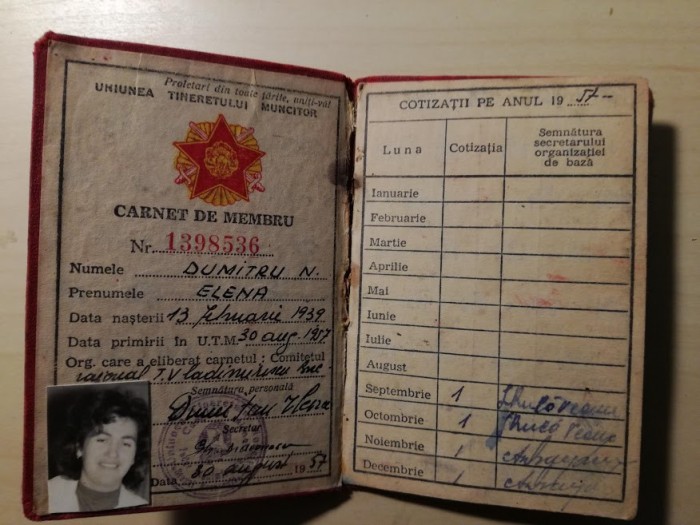 Proletari din toate țările, uniți-vă
UNIUNEA TINERETULUI MUNCITOR
CARNET DE MEMBRU
Nr. 1398536
Numele DUMITRU N.
Prenumele ELENA
Data nașterii 13 februarie 1939
Data primirii în U.T.M. 30 aug. 1957
Org. care a eliberat carnetul : Comitetul
raional T. Vladimirescu
Semnătura personală
Dumitru Elena
Secretar
30 august 1957
Data
COTIZAȚII PE ANUL 19 57
Luna
Cotizația
Semnătura
secretarului
organizației
de bază
Ianuarie
Februarie
Martie
Aprilie
Mai
Iunie
Iulie
August
Septembrie 1
Octombrie 1
Noiembrie 1
Decembrie 1